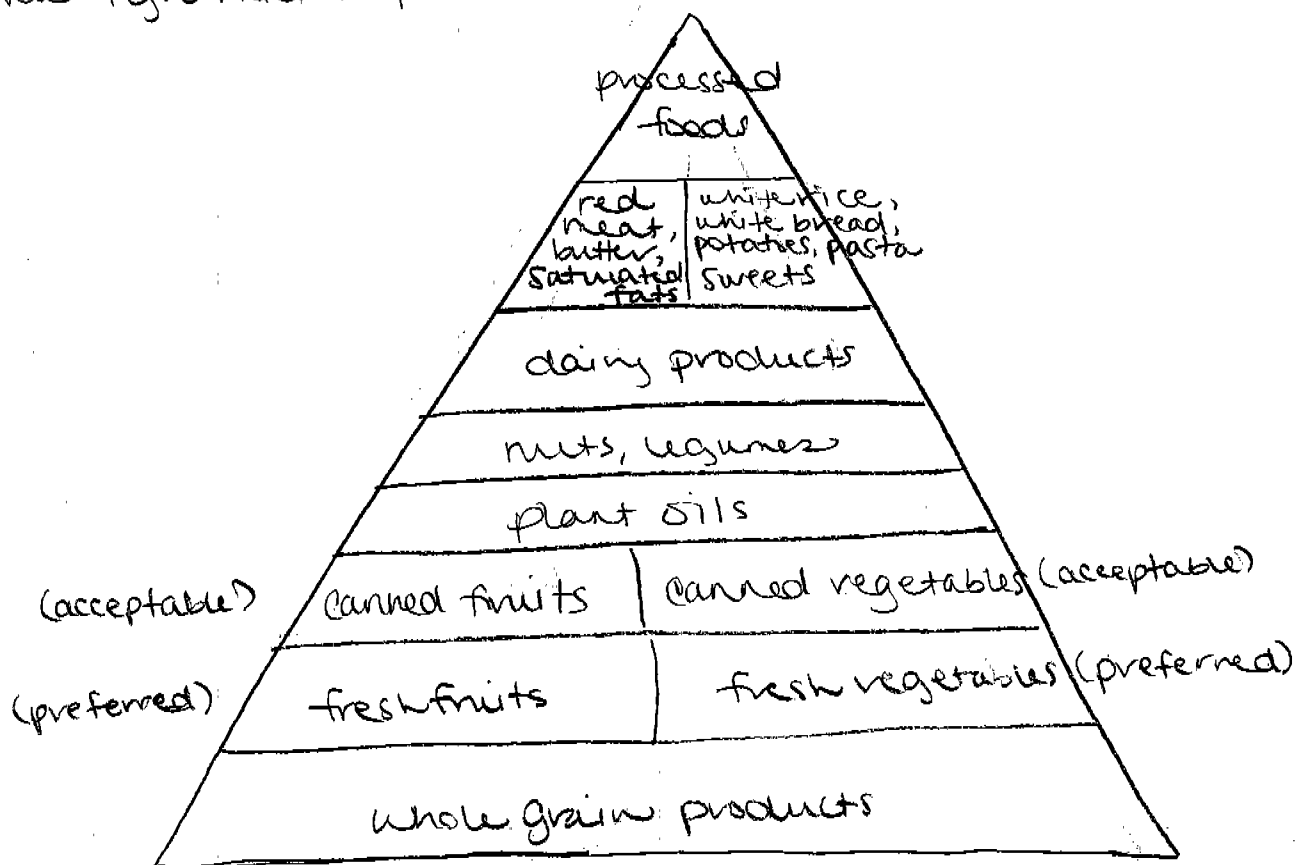 processed
foods
red
meat,
butter,
saturated
fats
white rice,
white bread,
potatoes, pasta
sweets
dairy products
nuts, legumes
plant oils
(acceptable) canned fruits canned vegetables (acceptable)
(preferred) fresh fruits fresh vegetables (preferred)
whole grain products